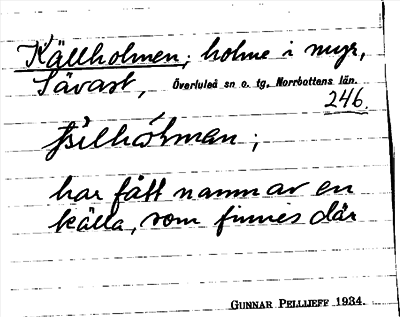 Källholmen; holme i myr,
Sävast, Överluleå sn o. tg. Norrbottens län.
246.
har fått namn av en
källa, som finnes där
GUNNAR PELLIJEFF 1934.